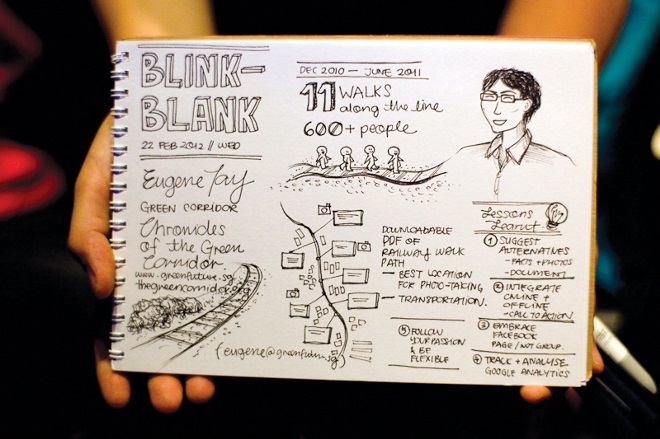 BLINK-
BLANK
22 FEB 2012 // WED
Eugene Tay
GREEN CORRIDOR
Chronicles
of the Green
Corridor
www.greenfuture.sg
thegreencorridor.org
(eugene@greenfuture.sg
DEC 2010 — JUNE 2011
11 WALKS
along the line
600+ people
DOWNLOADABLE
PDF OF
RAILWAY WALK
PATH
— BEST LOCATION
FOR PHOTO-TAKING
— TRANSPORTATION.
Lessons
Learnt
1 SUGGEST
ALTERNATIVES
- FACTS + PHOTOS
- DOCUMENT
2 INTEGRATE
ONLINE +
OFFLINE
- CALL TO ACTION
3 EMBRACE
FACEBOOK
PAGE / NOT GROUP.
4 TRACK + ANALYSE
GOOGLE ANALYTICS
5 FOLLOW
YOUR PASSION
& BE
FLEXIBLE